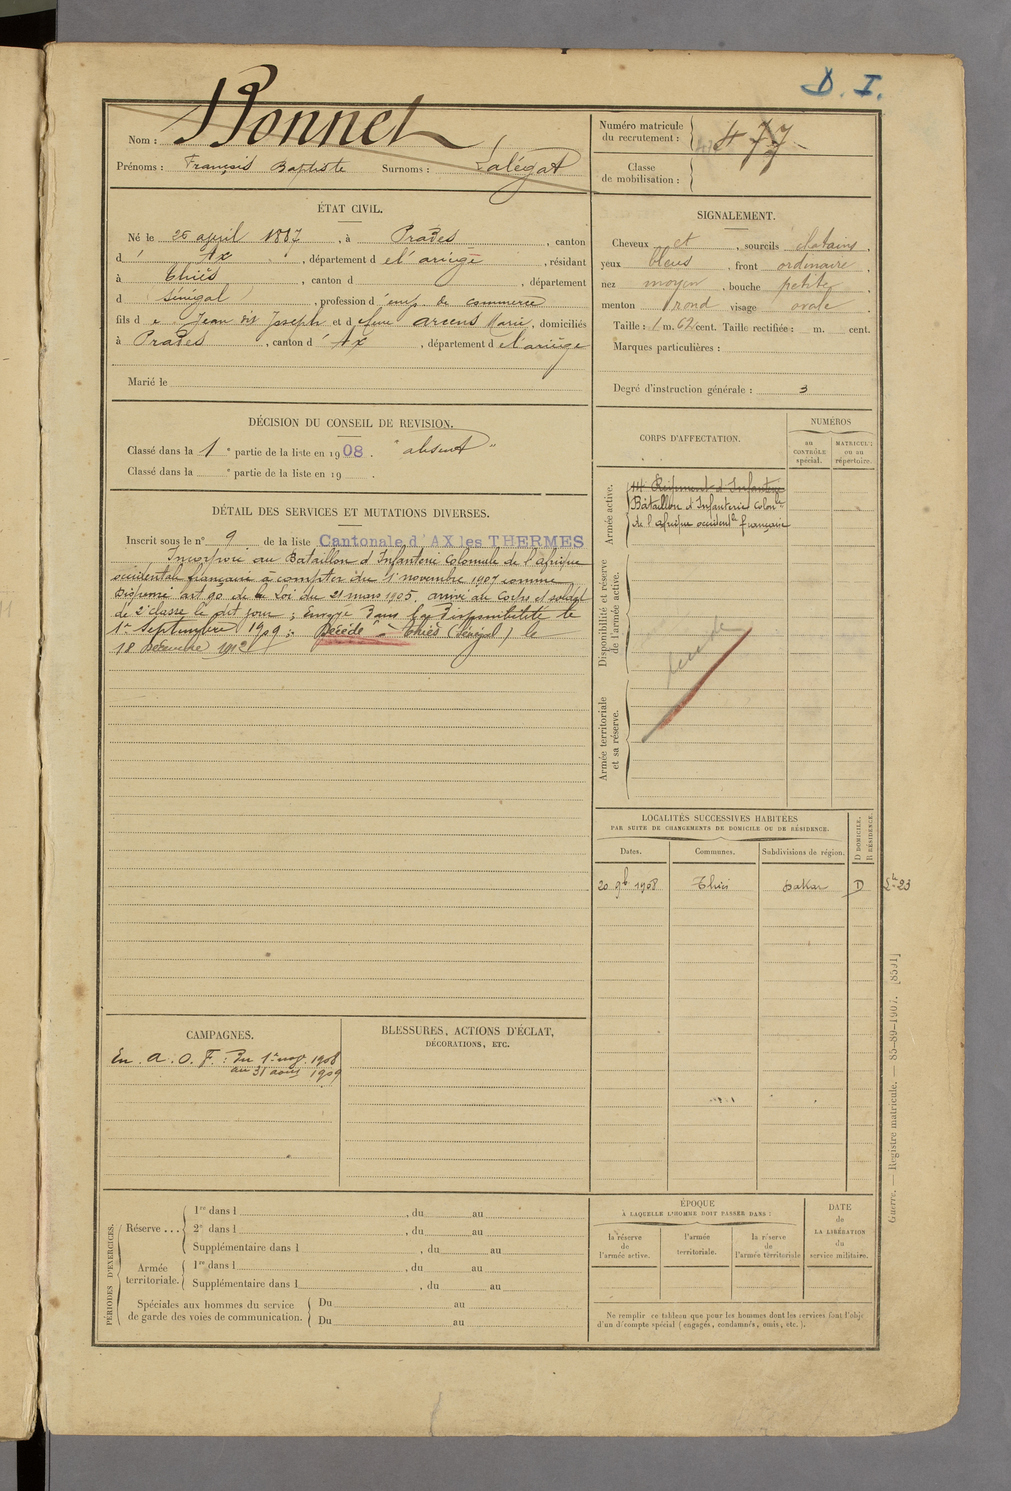 D. I.
Nom : Bonnet
Prénoms : François Baptiste Surnoms : Lalégat
Numéro matricule du recrutement : 477
Classe de mobilisation :
ÉTAT CIVIL.
Né le 25 april 1887, à Prades, canton
d' Ax, département d e l'ariège, résidant
à Thiès, canton d , département
d (Sénégal), profession d' emp. de commerce
fils d e Jean dit Joseph et d e feue arcens Marie, domiciliés
à Prades, canton d' Ax, département d e l'ariège
Marié le
SIGNALEMENT.
Cheveux et, sourcils chatains,
yeux bleus, front ordinaire,
nez moyen, bouche petite,
menton rond visage ovale.
Taille : 1 m. 62 cent. Taille rectifiée : m. cent.
Marques particulières :
Degré d'instruction générale : 3
DÉCISION DU CONSEIL DE REVISION.
Classé dans la 1 e partie de la liste en 1908. "absent"
Classé dans la e partie de la liste en 19 .
DÉTAIL DES SERVICES ET MUTATIONS DIVERSES.
Inscrit sous le n° 9 de la liste Cantonale d'AX les THERMES
Incorporé au Bataillon d'Infanterie Coloniale de l'afrique
occidentale française à compter du 1er novembre 1907 comme
Dispensé art 90 de la Loi du 21 mars 1905. arrivé au Corps et soldat
de 2e classe le dit jour ; Envoyé dans la disponibilité le
1er Septembre 1909 : Décédé à Thiès (Sénégal) le
18 Décembre 1912
CORPS D'AFFECTATION.
NUMÉROS
au CONTRÔLE spécial.
MATRICULE ou au répertoire.
Armée active.
14e Régiment d'Infanterie
Bataillon d'Infanterie Colonle
de l'afrique occidentle française
Disponibilité et réserve de l'armée active.
Décédé
Armée territoriale et sa réserve.
LOCALITÉS SUCCESSIVES HABITÉES
PAR SUITE DE CHANGEMENTS DE DOMICILE OU DE RÉSIDENCE.
Dates. Communes. Subdivisions de région. D DOMICILE. R RÉSIDENCE.
20 9b 1908 Thiès Dakar D
CAMPAGNES.
En A. O. F. : Du 1er nov. 1908
au 31 août 1909
BLESSURES, ACTIONS D'ÉCLAT,
DÉCORATIONS, ETC.
PÉRIODES D'EXERCICES.
Réserve ...
1re dans l , du au
2e dans l , du au
Supplémentaire dans l , du au
Armée territoriale.
1re dans l , du au
Supplémentaire dans l , du au
Spéciales aux hommes du service de garde des voies de communication.
Du au
Du au
ÉPOQUE
À LAQUELLE L'HOMME DOIT PASSER DANS :
la réserve de l'armée active.
l'armée territoriale.
la réserve de l'armée territoriale
DATE de LA LIBÉRATION du service militaire.
Ne remplir ce tableau que pour les hommes dont les services font l'obje
d'un décompte spécial (engagés, condamnés, omis, etc.).
Guerre. — Registre matricule. — 85-89-1907. [8591]